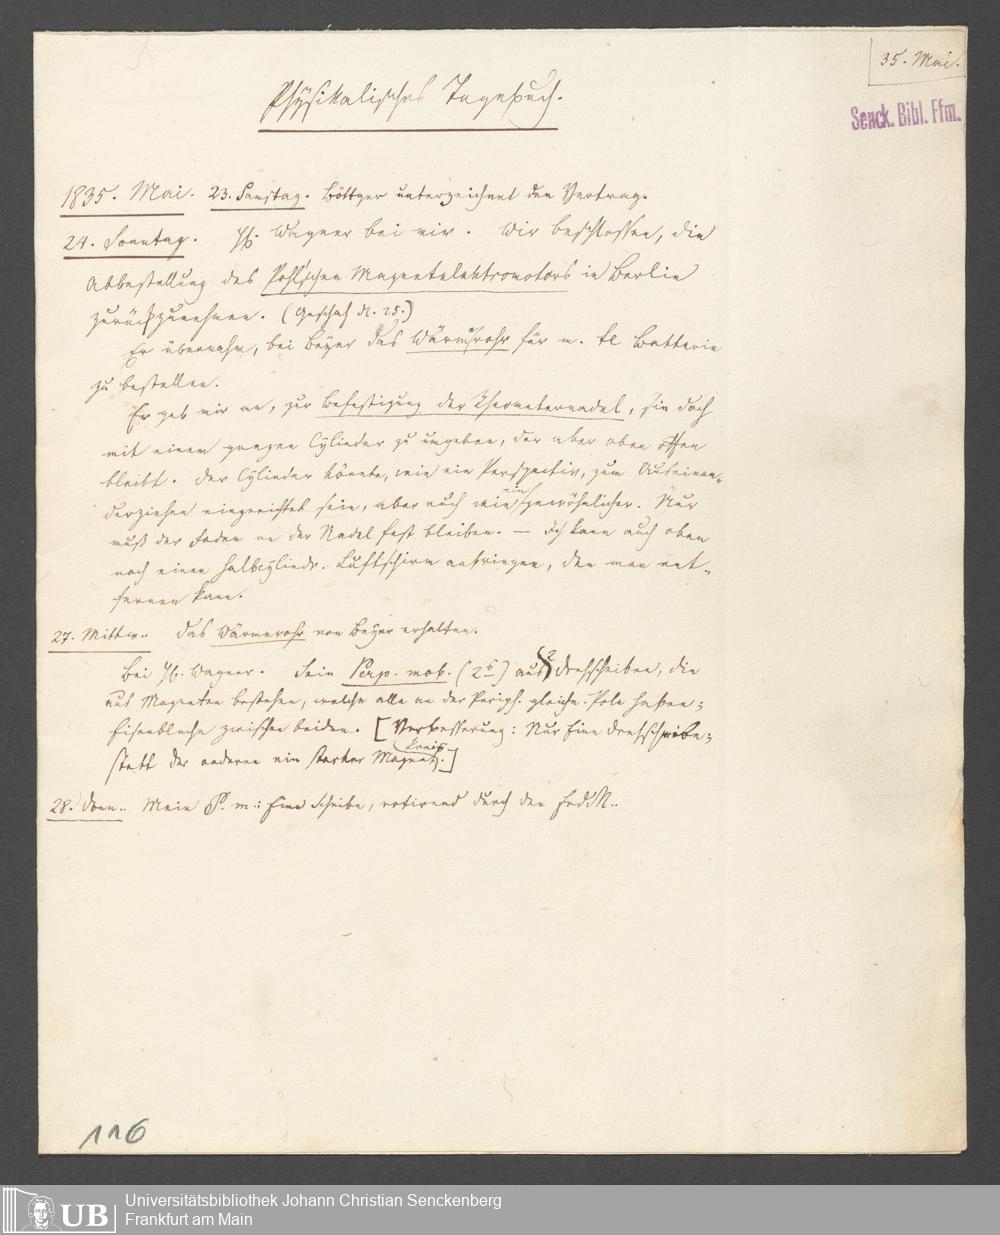 35. Mai.
Senck. Bibl. Ffm.
Physikalisches Tagebuch.
1835. Mai. 23. Samstag. Böttger unterzeichnet den Vertrag.
24. Sonntag. Hr. Wagner bei mir. Wir beschlossen, die
Abbestellung des Pohl'schen Magnetelektromotors in Berlin
zurückzunehmen. (Geschah d. 25.)
Er übernahm, bei Beyer das Wärmrohr für m. El Batterie
zu bestellen.
Er gab mir an, zur Befestigung der Thermometernadel, sie doch
mit einem ganzen Cylinder zu umgeben, der aber oben offen
bleibt. Der Cylinder könnte, wie ein Perspectiv, zum Auseinan-
derziehen eingerichtet sein, aber auch wie ein gewöhnlicher. Nur
muß der Faden an der Nadel fest bleiben. — Ich kann auch oben
noch einen halbcylindr. Luftschirm anbringen, den man ent-
fernen kann.
27. Mittw. Das Wärmerohr von Beyer erhalten.
Bei Hr. Wagner. Sein Perp. mob. (2) aus 2 Drehscheiben, die
aus Magneten bestehen, welche alle an der Periph. gleiche Pole haben;
Eisenbleche zwischen beiden. [Verbesserung: Nur Eine Drehscheibe;
statt der anderen ein starker Magnet.]
28. Donn. Mein P. m.: Eine Scheibe, rotirend durch den
116
UB
Universitätsbibliothek Johann Christian Senckenberg
Frankfurt am Main